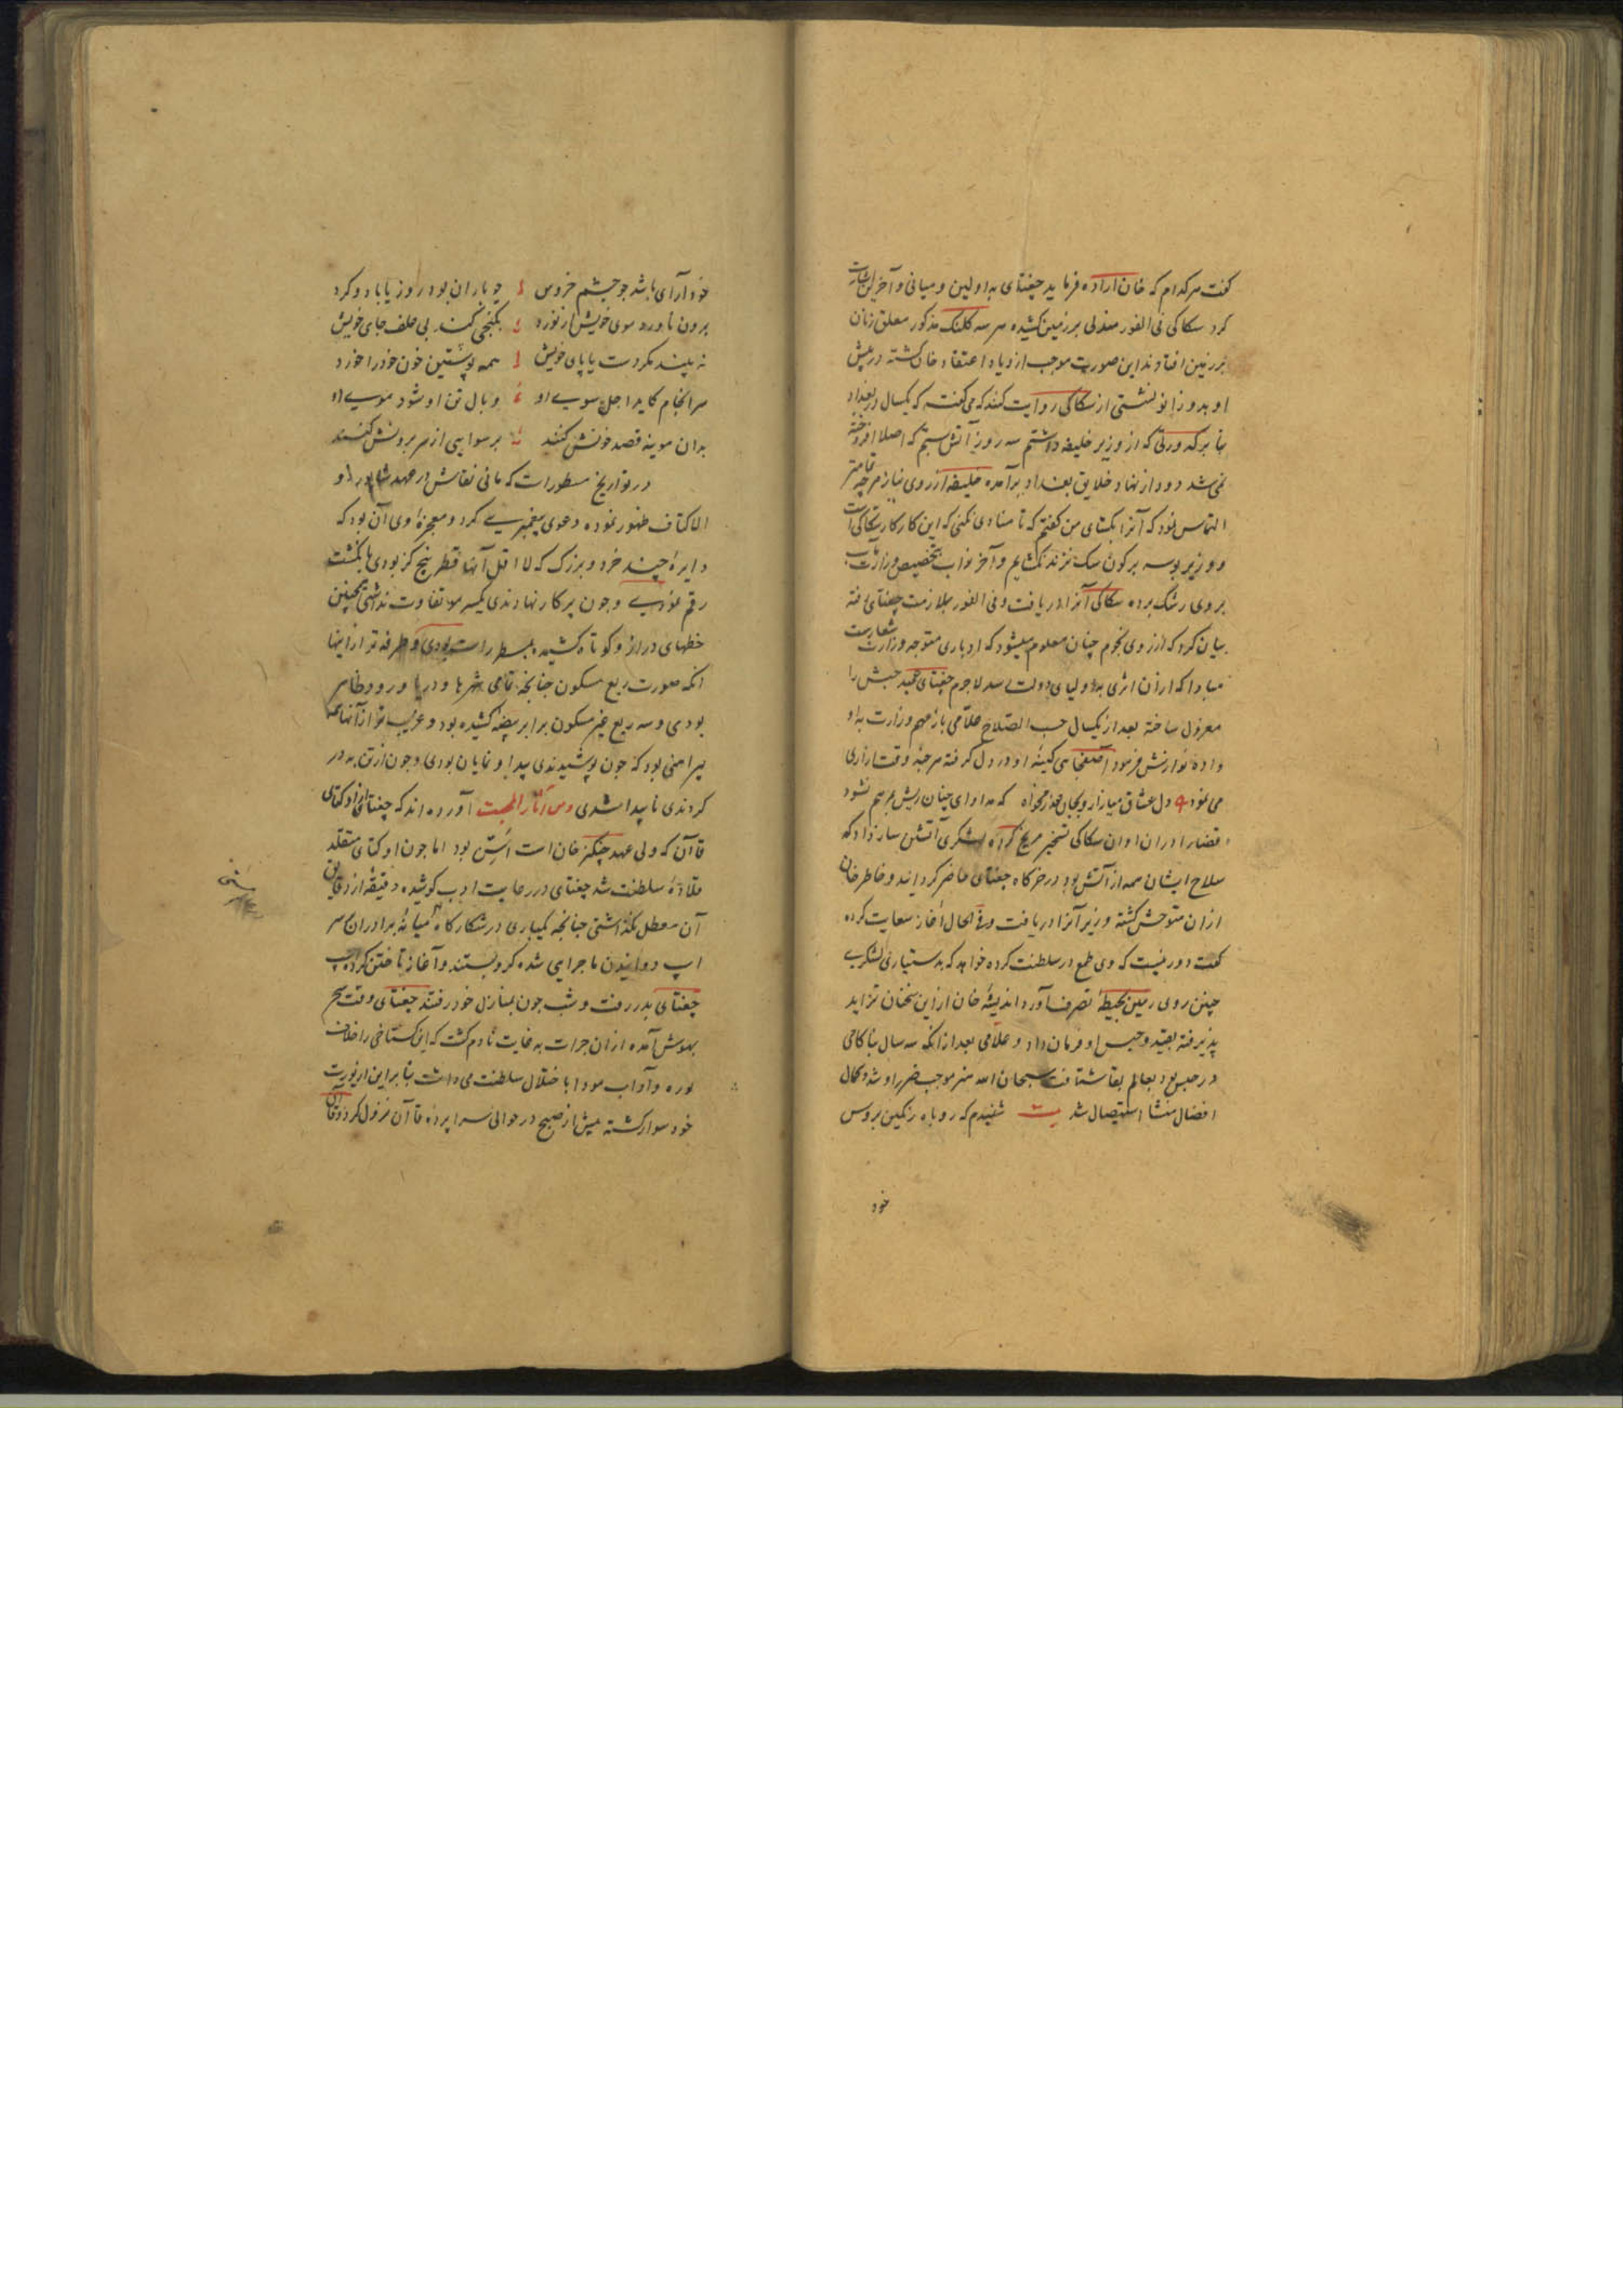 گفت هر کدام که خان اراده فرماید چغتای به اولین و میانی و آخرین اشارت
کرد سکاکی فی الفور مندلی بر زمین کشیده هر سه کلنک مذکور معلق زنان
بر زمین افتادند این صورت موجب ازدیاد اعتقاد خان کشته در پیش
او بدو زانو نشستی از سکاکی روایت کنند که می گفت که یکسال در بغداد
بنا بر کدورتی که از وزیر خلیفه داشتم سه روز آتش بستم که اصلا افروخته
نمی شد دود از نهاد خلایق بغداد برآمده خلیفه از روی نیاز هرچه تمامتر
التماس نمود که آنرا بکشای من گفتم که تا منادی نکنی که این کار کار سکاکی است
و وزیر بوسه بر کون سک نزند نکشایم و آخر نواب بتخصیص وزارت مآب
بروی رشک برده سکاکی آنرا دریافت و فی الفور بملازمت چغتای رفته
بیان کرد که از روی نجوم چنان معلوم میشود که ادباری متوجه وزارت شعارست
مبادا که از آن اثری به اولیای دولت رسد لاجرم چغتای عمید حبش را
معزول ساخته بعد از یکسال حسب الصلاح علامی باز مهم وزارت به او
داده نوازش فرمود آصفجاهی کینه او در دل گرفته هر جه وقتش ازاری
می نمود دل عشاق میازار و بجان عذر مخواه که مداوای چنان ریش بمرهم نشود
قضا را در ان اوان سکاکی تسخیر مریخ کرده لشکری آتشین ساز داد که
سلاح ایشان همه از آتش بود در خرکاه چغتای حاضر کردانید و خاطر خان
از ان متوحش کشته وزیر آنرا دریافت و فی الحال آغاز سعایت کرده
گفت دور نیست که وی طمع در سلطنت کرده خواهد که بدستیاری لشکری
چنین روی زمین بحیطه تصرف آورد اندیشه خان از این سخنان تزاید
پذیرفته بقید و حبس او فرمان داد و علامی بعد از انکه سه سال بناکامی
در حبس بود بعالم بقا شتافت سبحان الله هنر موجب ضرر او شد و کمال
افضال منشا استیصال شد بیت شنیدم که روباه رنگین بروس
خود
خود آرای باشد جو چشم خروس جو باران بود روز یا باد و کرد
برون ناورد موی خویش از نورد بکنجی کند بی علف جای خویش
نه بیند مکر دست یا پای خویش همه پوستین خون خود را خورد
سر انجام کاید اجل سوی او وبال تن او شود موی او
بدان موینه قصد خونش کنند برسوایی از سر برونش کنند
در تواریخ مسطورات که مانی نقاش در عهد شاپور ذو
الاکتاف ظهور نموده دعوی پیغمبری کرد و معجزه وی آن بود که
دایره چند خرد و بزرک که لا اقل آنها قطر پنج کز بودی با نکشت
رقم نمودی و چون پرکار نهادندی یکسر مو تفاوت نداشتی همچنین
خطهای دراز و کوتاه کشیده بمسطر راست بودی و طرفه تر از اینها
انکه صورت ربع مسکون جنانچه تمامی شهرها و دریا و رود ظاهر
بودی و سه ربع غیر مسکون برابر بیضه کشیده بود و غریب تر از آنها
پیراهنی بود که جون پوشیدندی پیدا و نمایان بودی و جون از تن بدر
کردندی نا پیدا شدی و من آثار المحبت آورده اند که چغتای از اوکتای
قاآن که ولی عهد چنکیز خان است اسن بود اما جون اوکتای متقلد
قلاده سلطنت شد چغتای در رعایت ادب کوشیده دقیقه از دقایق
آن معطل نکذاشتی جنانچه یکباری در شکارگاه میانه برادران بر سر
اسپ دوانیدن ماجرایی شده کرو بستند و آغاز تاختن کرده اسپ
چغتای بدر رفت و شب جون بمنازل خود رفتند چغتای وقت سحر
بهوش آمده از ان جرات به غایت نادم گشت که این گستاخی را خلاف
توره و آداب مودا باختلال سلطنت می دانست بنا بر این از یورت
خود سوار کشته پیش از صبح در حوالی سراپرده قاآن نزول کرد و قاآن